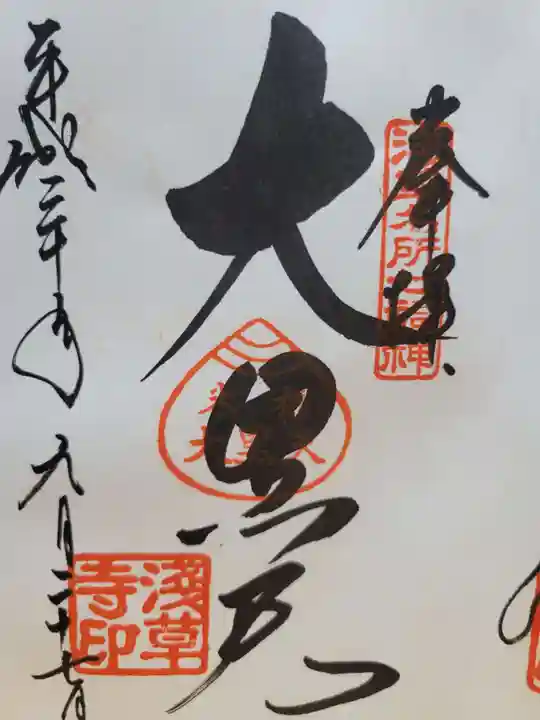 奉拝
淺草名所七福神
大黒天
平成二十年九月二十七日
淺草
寺印